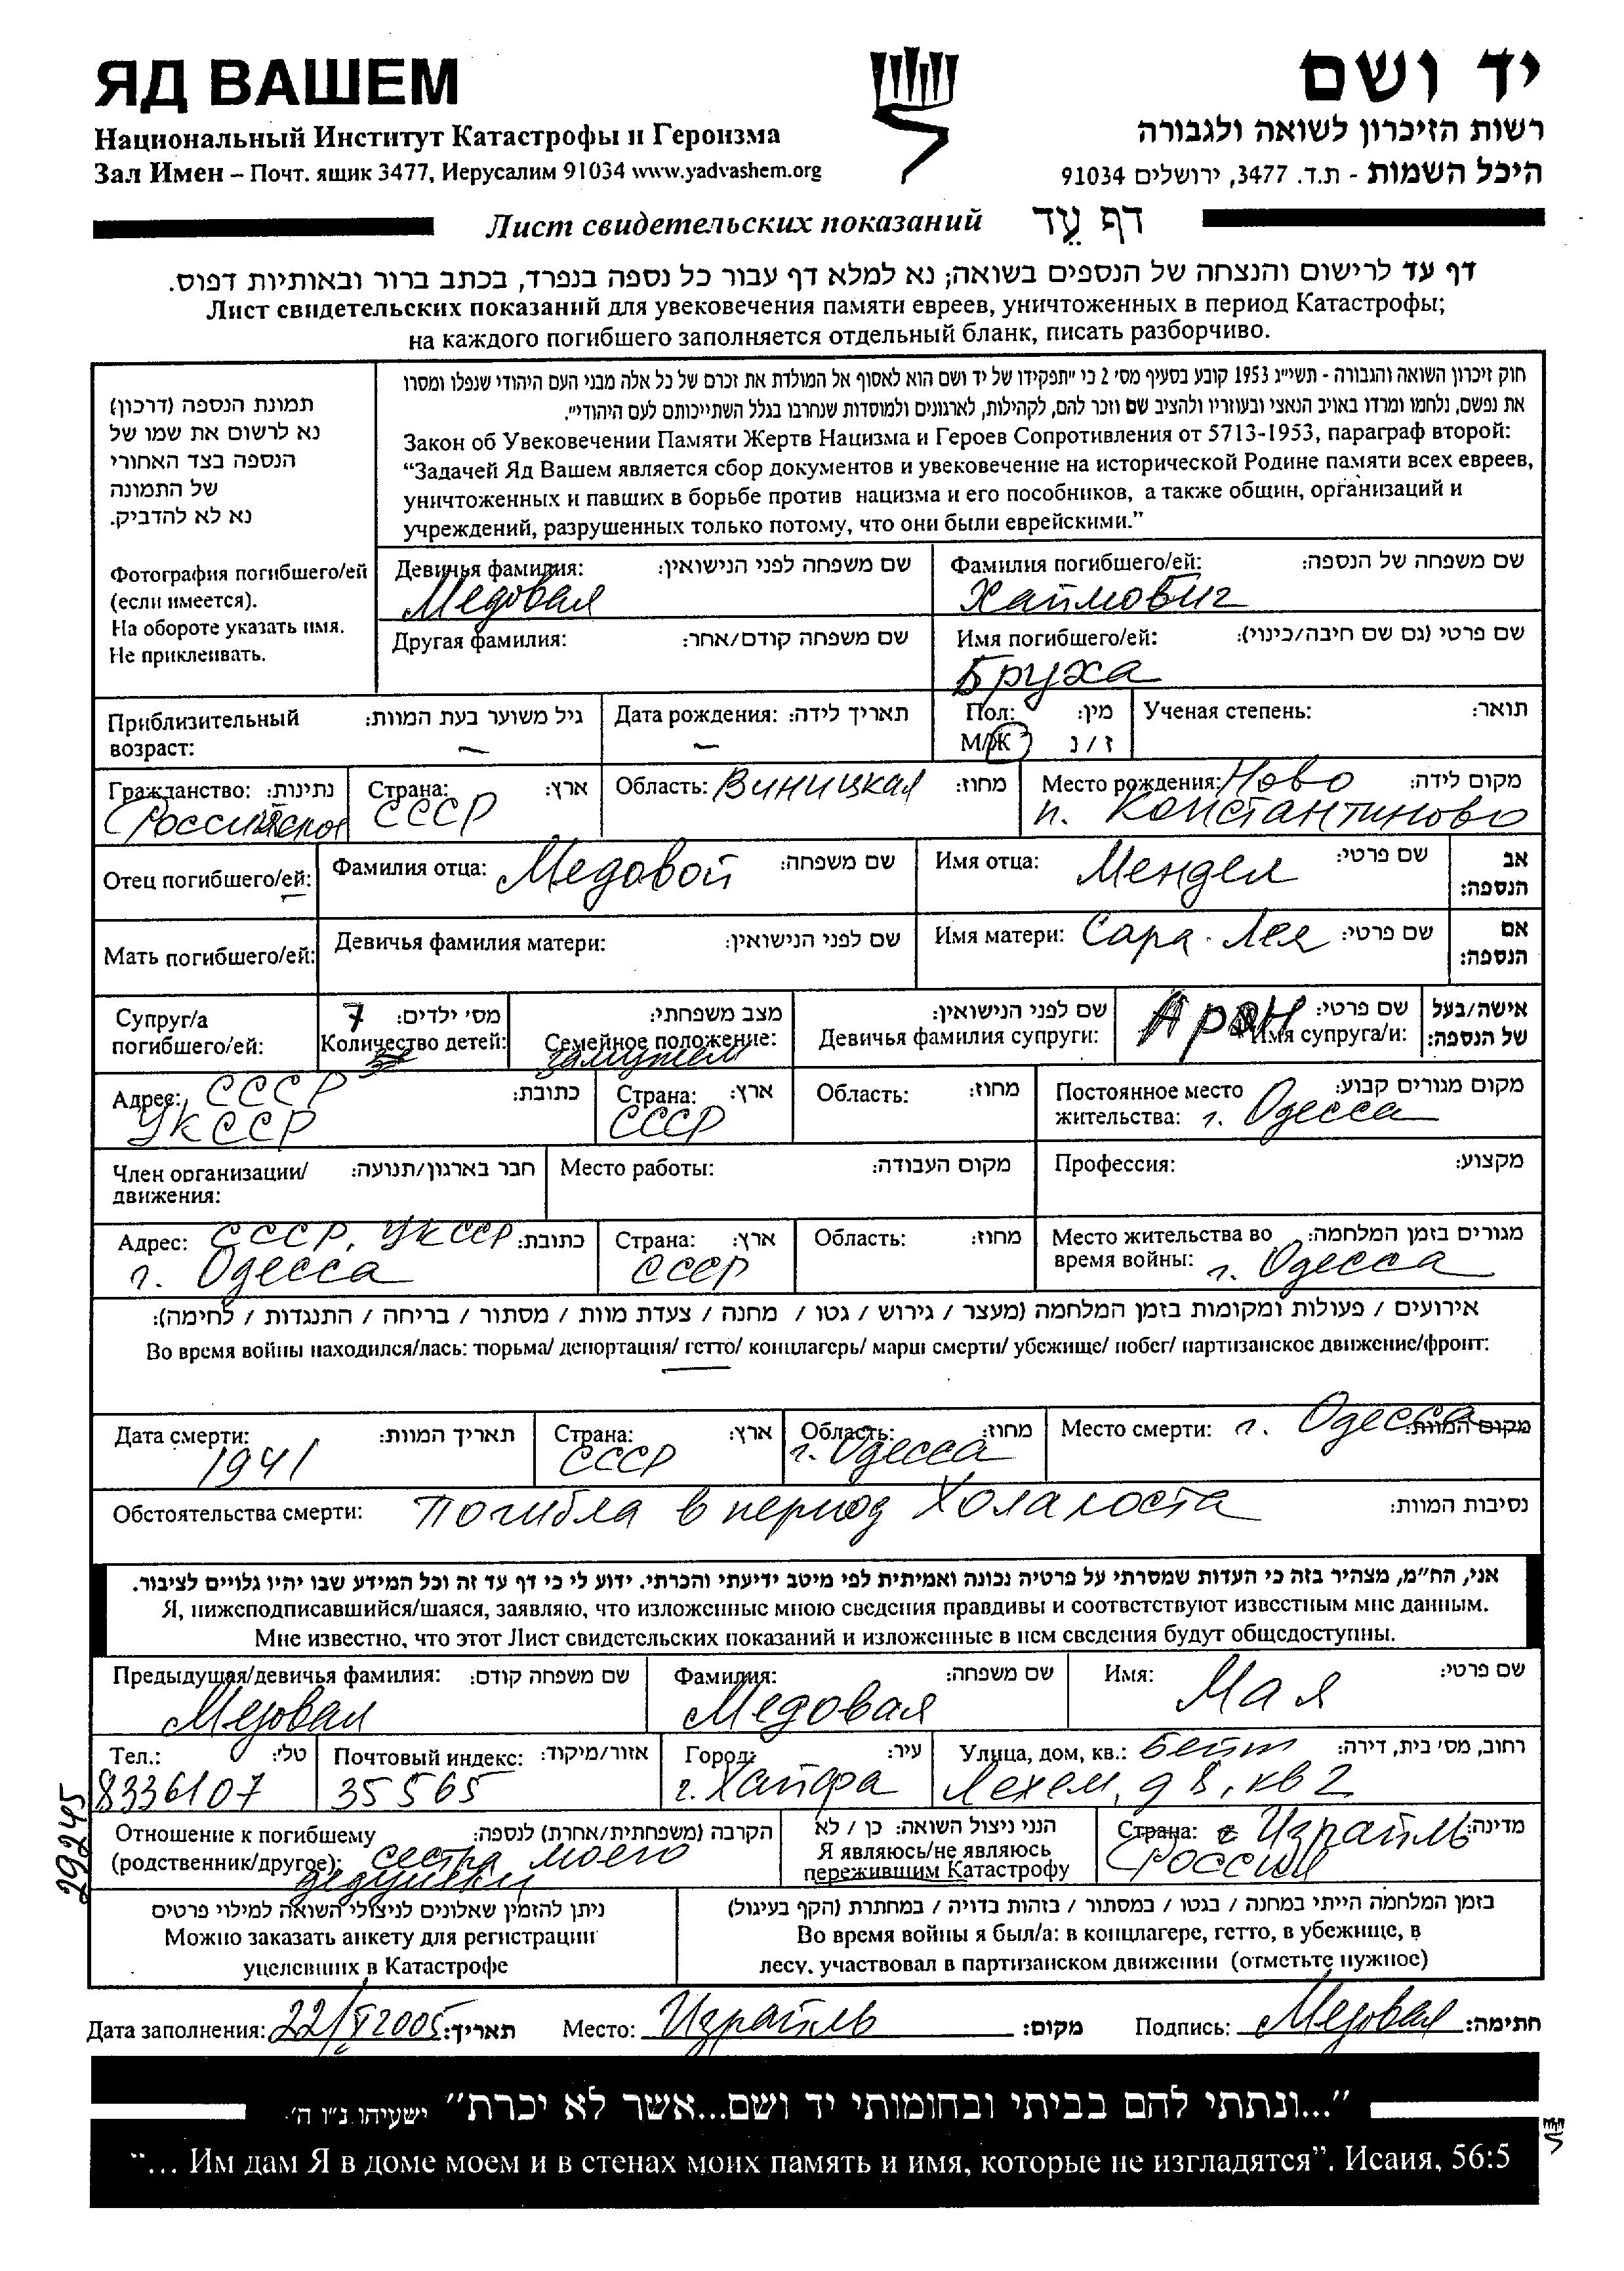 ЯД ВАШЕМ
יד ושם
Национальный Институт Катастрофы и Героизма
רשות הזיכרון לשואה ולגבורה
Зал Имен – Почт. ящик 3477, Иерусалим 91034 www.yadvashem.org
היכל השמות - ת.ד. 3477, ירושלים 91034
Лист свидетельских показаний דף עֵד
דף עד לרישום והנצחה של הנספים בשואה; נא למלא דף עבור כל נספה בנפרד, בכתב ברור ובאותיות דפוס.
Лист свидетельских показаний для увековечения памяти евреев, уничтоженных в период Катастрофы;
на каждого погибшего заполняется отдельный бланк, писать разборчиво.
תמונת הנספה (דרכון)
נא לרשום את שמו של
הנספה בצד האחורי
של התמונה
נא לא להדביק.
Фотография погибшего/ей
(если имеется).
На обороте указать имя.
Не приклеивать.
חוק זיכרון השואה והגבורה - תשי״ג 1953 קובע בסעיף מס׳ 2 כי ״תפקידו של יד ושם הוא לאסוף אל המולדת את זכרם של כל אלה מבני העם היהודי שנפלו ומסרו
את נפשם, נלחמו ומרדו באויב הנאצי ובעוזריו ולהציב שם וזכר להם, לקהילות, לארגונים ולמוסדות שנחרבו בגלל השתייכותם לעם היהודי״.
Закон об Увековечении Памяти Жертв Нацизма и Героев Сопротивления от 5713-1953, параграф второй:
“Задачей Яд Вашем является сбор документов и увековечение на исторической Родине памяти всех евреев,
уничтоженных и павших в борьбе против нацизма и его пособников, а также общин, организаций и
учреждений, разрушенных только потому, что они были еврейскими.”
Девичья фамилия: שם משפחה לפני הנישואין:
Медовая
Фамилия погибшего/ей: שם משפחה של הנספה:
Хаймович
Другая фамилия: שם משפחה קודם/אחר:
Имя погибшего/ей: שם פרטי (גם שם חיבה/כינוי):
Бруха
Приблизительный גיל משוער בעת המוות:
возраст: –
Дата рождения: תאריך לידה:
–
Пол: מין:
М/Ж ז / נ
Ученая степень: תואר:
Гражданство: נתינות:
Российское
Страна: ארץ:
СССР
Область: Виницкая מחוז:
Место рождения: Ново מקום לידה:
п. Константиново
Отец погибшего/ей:
Фамилия отца: Медовой שם משפחה:
Имя отца: Мендел שם פרטי:
אב
הנספה:
Мать погибшего/ей:
Девичья фамилия матери: שם לפני הנישואין:
Имя матери: Сара-Лея שם פרטי:
אם
הנספה:
Супруг/а
погибшего/ей:
7 מסי ילדים:
Количество детей:
מצב משפחתי:
Семейное положение:
замужем
שם לפני הנישואין:
Девичья фамилия супруги:
Арон שם פרטי:
Имя супруга/и:
אישה/בעל
של הנספה:
Адрес: СССР כתובת:
УКССР
Страна: ארץ:
СССР
Область: מחוז:
Постоянное место מקום מגורים קבוע:
жительства: г. Одесса
Член организации/ חבר בארגון/תנועה:
движения:
Место работы: מקום העבודה:
Профессия: מקצוע:
Адрес: СССР, УКССР כתובת:
г. Одесса
Страна: ארץ:
СССР
Область: מחוז:
Место жительства во מגורים בזמן המלחמה:
время войны: г. Одесса
אירועים / פעולות ומקומות בזמן המלחמה (מעצר / גירוש / גטו / מחנה / צעדת מוות / מסתור / בריחה / התנגדות / לחימה):
Во время войны находился/лась: тюрьма/ депортация/ гетто/ концлагерь/ марш смерти/ убежище/ побег/ партизанское движение/фронт:
Дата смерти: תאריך המוות:
1941
Страна: ארץ:
СССР
Область: מחוז:
г. Одесса
Место смерти: г. Одесса מקום המוות:
Обстоятельства смерти: Погибла в период Холакоста נסיבות המוות:
אני, הח״מ, מצהיר בזה כי העדות שמסרתי על פרטיה נכונה ואמיתית לפי מיטב ידיעתי והכרתי. ידוע לי כי דף עד זה וכל המידע שבו יהיו גלויים לציבור.
Я, нижеподписавшийся/шаяся, заявляю, что изложенные мною сведения правдивы и соответствуют известным мне данным.
Мне известно, что этот Лист свидетельских показаний и изложенные в нем сведения будут общедоступны.
Предыдущая/девичья фамилия: שם משפחה קודם:
Медовая
Фамилия: שם משפחה:
Медовая
Имя: Мая שם פרטי:
Тел.: טלי:
8336107
Почтовый индекс: אזור/מיקוד:
35565
Город: עיר:
г. Хайфа
Улица, дом, кв.: Бейт רחוב, מסי בית, דירה:
Лехем, д 8, кв 2
Отношение к погибшему הקרבה (משפחתית/אחרת) לנספה:
(родственник/другое): сестра моего
дедушки
הנני ניצול השואה: כן / לא
Я являюсь/не являюсь
пережившим Катастрофу
Страна: Израиль מדינה:
России
ניתן להזמין שאלונים לניצולי השואה למילוי פרטים
Можно заказать анкету для регистрации
уцелевших в Катастрофе
בזמן המלחמה הייתי במחנה / בגטו / במסתור / בזהות בדויה / במחתרת (הקף בעיגול)
Во время войны я был/а: в концлагере, гетто, в убежище, в
лесу, участвовал в партизанском движении (отметьте нужное)
29245
Дата заполнения: 22/VI 2005 תאריך: Место: Израиль מקום: Подпись: Медовая חתימה:
״...ונתתי להם בביתי ובחומותי יד ושם...אשר לא יכרת״ ישעיהו נ״ו ה׳
“... Им дам Я в доме моем и в стенах моих память и имя, которые не изгладятся”. Исаия, 56:5